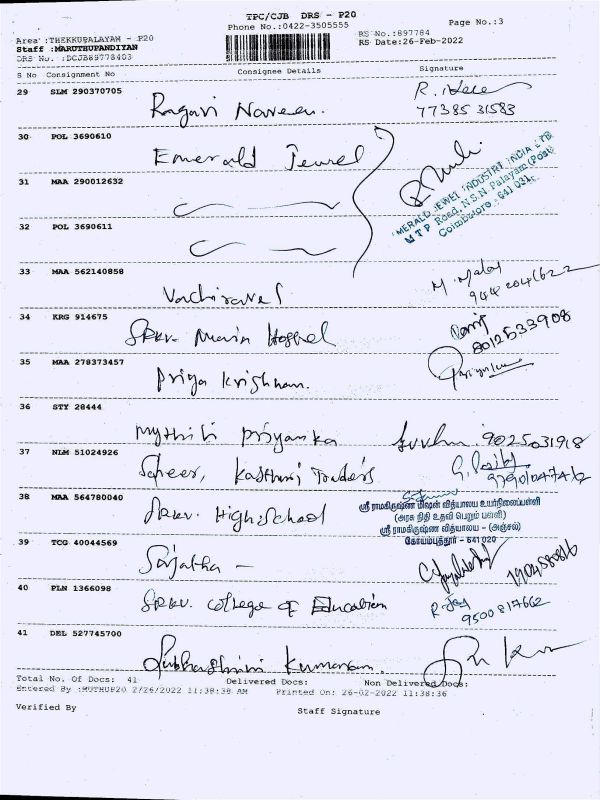 TPC/CJB DRS - P20
Phone No.:0422-3505555
Page No.:3
Area :THEKKUPALAYAM - P20
Staff :MARUTHUPANDIYAN
DRS No. :DCJB89778403
RS No.:897784
RS Date:26-Feb-2022
S No Consignment No Consignee Details Signature
29 SLM 290370705
Ragavi Naveen.
77385 31583
30 POL 3690610
Emerald Jewel
31 MAA 290012632
EMERALD JEWEL INDUSTRY INDIA LTD
M T P Road, N.S.N. Palayam (Post)
Coimbatore - 641 031.
32 POL 3690611
33 MAA 562140858
Vadivel
34 KRG 914675
SRKV. Main Hostel
8012533908
35 MAA 278373457
Priya Krishnan.
36 STY 28444
Mythili Priyanka 9025031918
37 NLM 51024926
Kasthuri Traders
38 MAA 564780040
SRKV. High School
ஸ்ரீ ராமகிருஷ்ண மிஷன் வித்யாலய உயர்நிலைப்பள்ளி
(அரசு நிதி உதவி பெறும் பள்ளி)
ஸ்ரீ ராமகிருஷ்ண வித்யாலய - (அஞ்சல்)
கோயம்புத்தூர் - 641 020
39 TCG 40044569
Sujatha -
40 PLN 1366098
SRKV. College of Education
9500817662
41 DEL 527745700
Subhashini Kumaran.
Total No. Of Docs: 41 Delivered Docs: Non Delivered Docs:
Entered By :MUTHUP20 2/26/2022 11:38:38 AM Printed On: 26-02-2022 11:38:36
Verified By Staff Signature